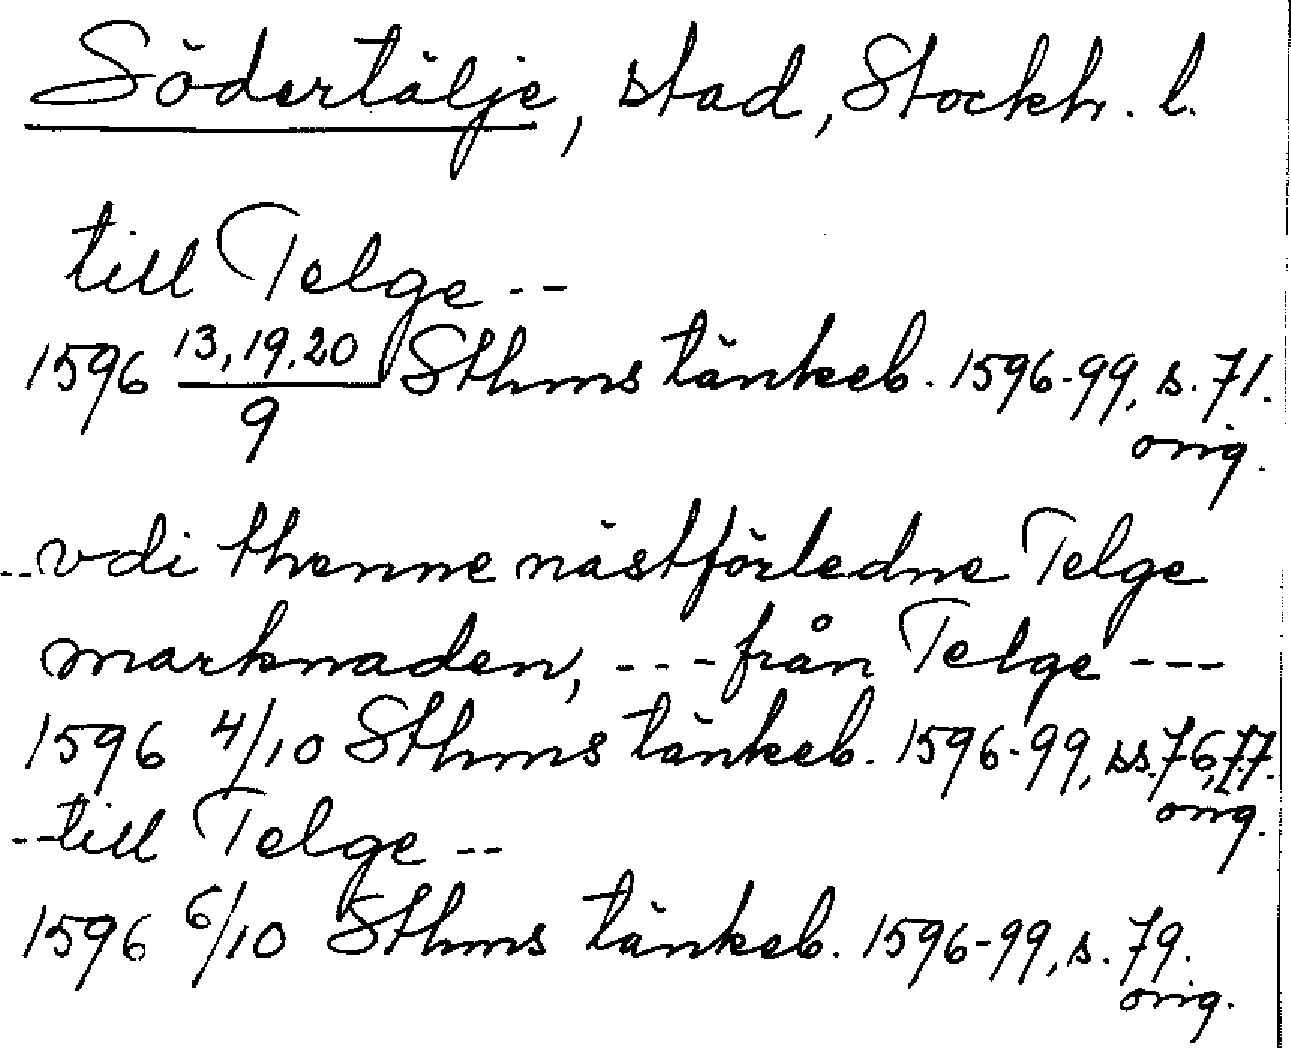 Södertälje, stad, Stockh. l.
till Telge --
1596 13,19.20/9 Sthms tänkeb. 1596-99, s. 71.
orig.
--vdi thenne nästförledne Telge
marknaden, --- från Telge ---
1596 4/10 Sthms tänkeb. 1596-99, ss. 76,77.
orig.
--till Telge --
1596 6/10 Sthms tänkeb. 1596-99, s. 79.
orig.